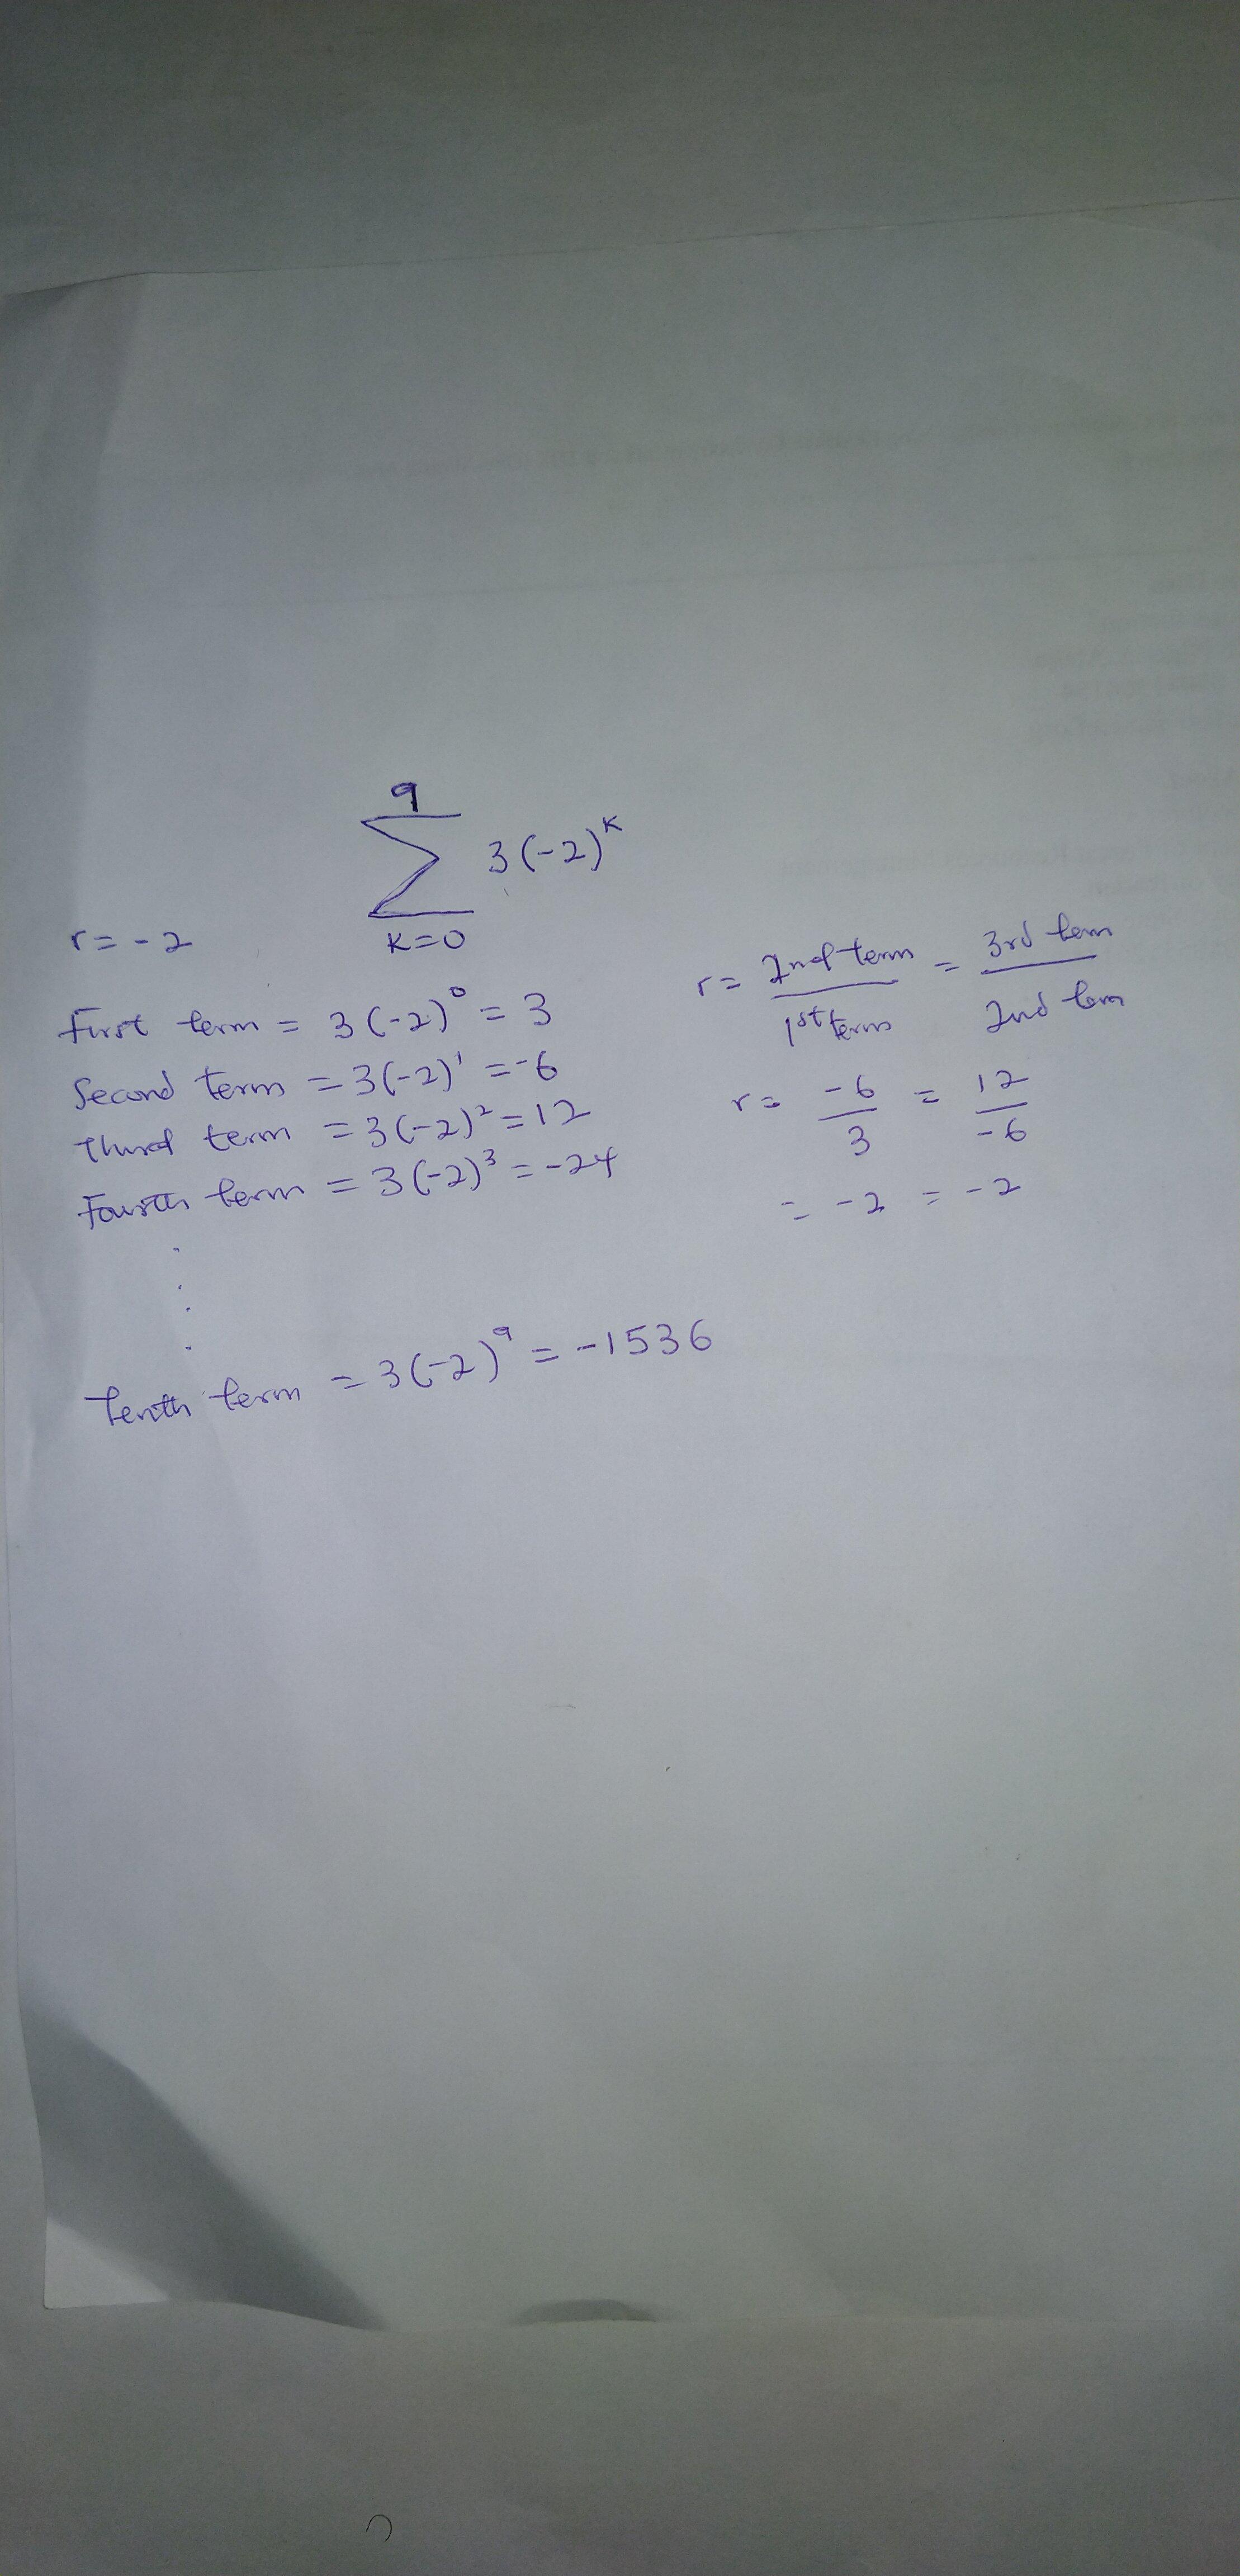 9
∑ 3(-2)^k
k=0
r = -2
First term = 3(-2)^0 = 3
Second term = 3(-2)^1 = -6
Third term = 3(-2)^2 = 12
Fourth term = 3(-2)^3 = -24
⋮
Tenth term = 3(-2)^9 = -1536
r = 2nd term / 1st term = 3rd term / 2nd term
r = -6/3 = 12/-6
= -2 = -2